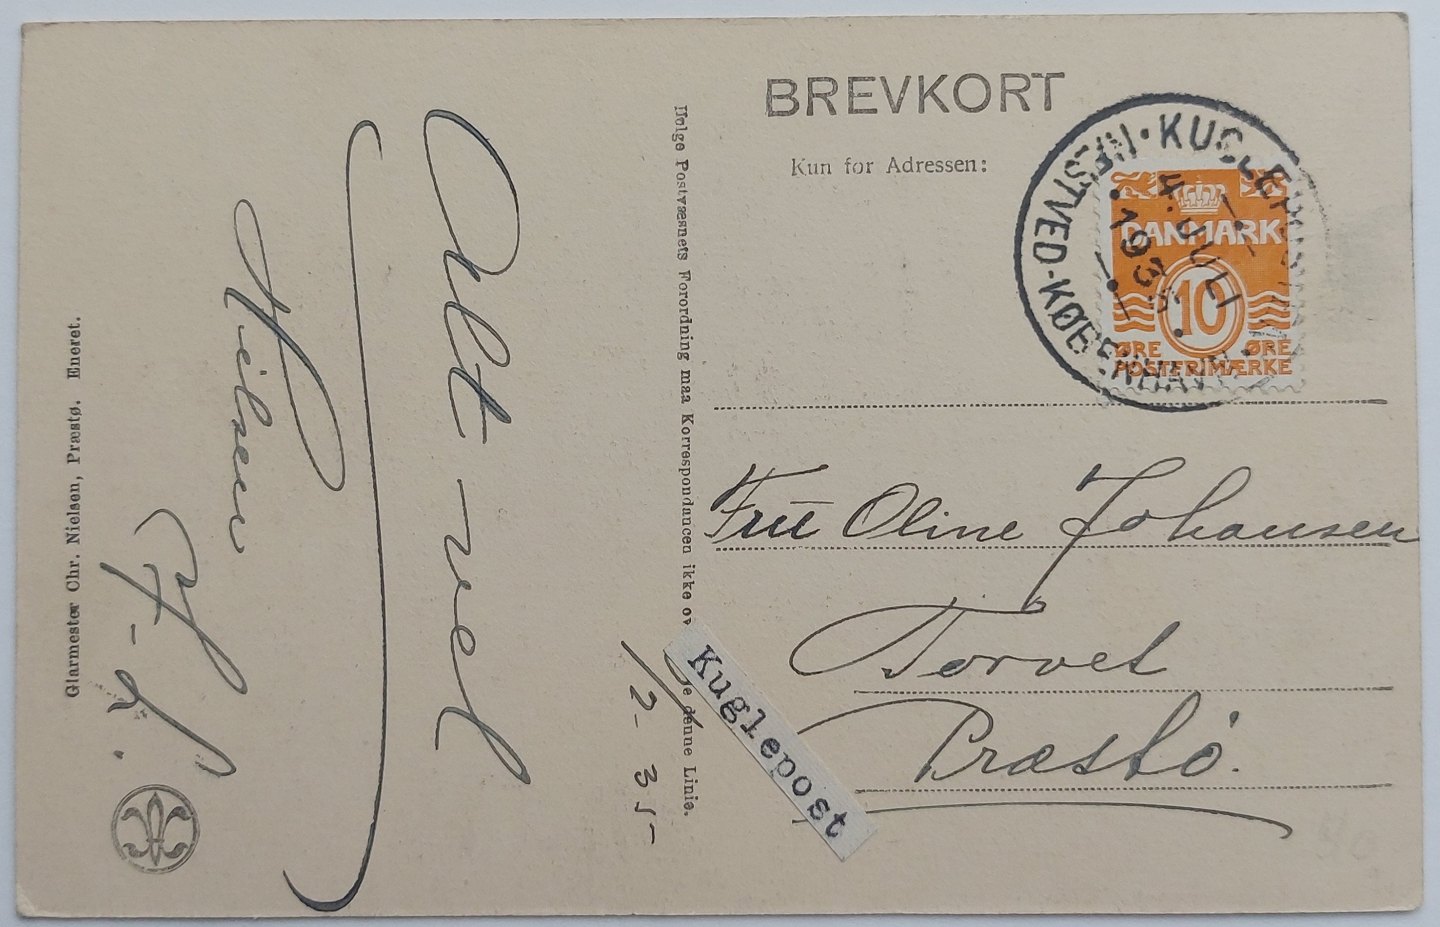 BREVKORT
Kun for Adressen:
KUGLEPOST · NÆSTVED-KØBENHAVN ·
4. JULI
1935
DANMARK
10
ØRE ØRE
POSTFRIMÆRKE
Fru Oline Johansen
Torvet
Præstö.
Kuglepost
Ifølge Postvæsnets Forordning maa Korrespondancen ikke ov e denne Linie.
1/2-35-
Alt-vel
Hilsen
Glarmester Chr. Nielsen, Præstø. Eneret.